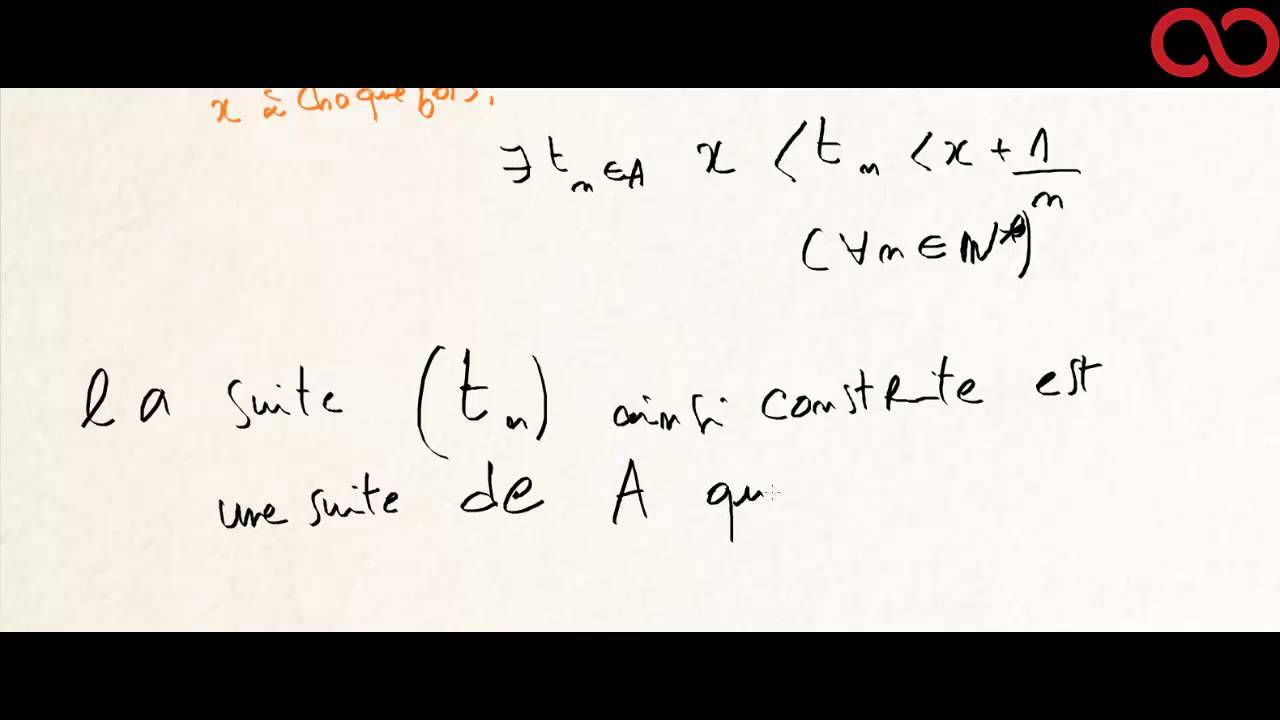 x à chaque fois.
∃ t_n ∈ A x < t_n < x + 1/n
(∀n ∈ ℕ*)
la suite (t_n) ainsi construite est
une suite de A qu